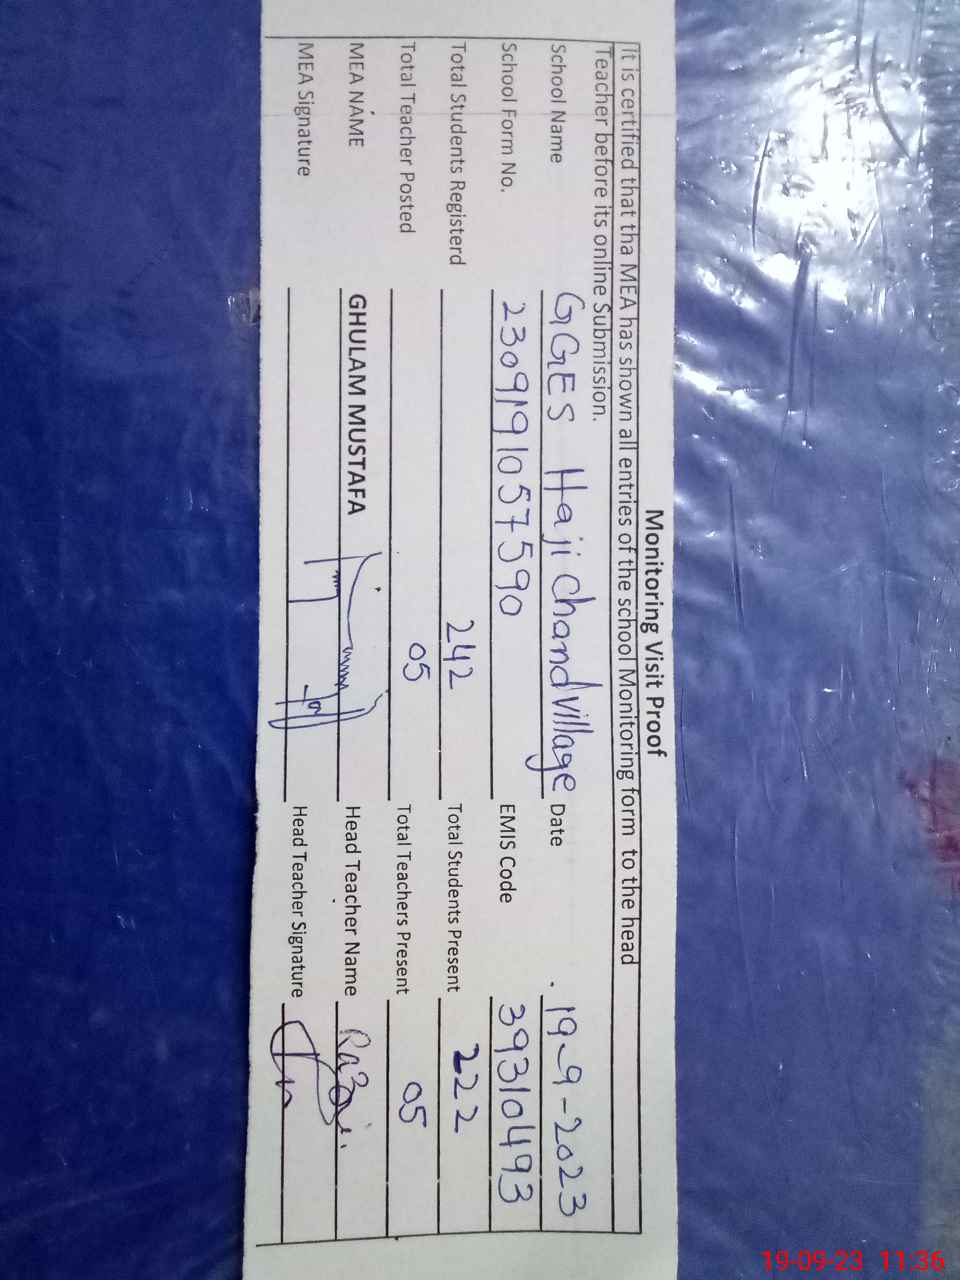 Monitoring Visit Proof
It is certified that tha MEA has shown all entries of the school Monitoring form to the head
Teacher before its online Submission.
School Name GGES Haji chand village Date 19-9-2023
School Form No. 2309191057590 EMIS Code 39310493
Total Students Registerd 242 Total Students Present 222
Total Teacher Posted 05 Total Teachers Present 05
MEA NAME GHULAM MUSTAFA Head Teacher Name
MEA Signature Head Teacher Signature
19-09-23 11:36